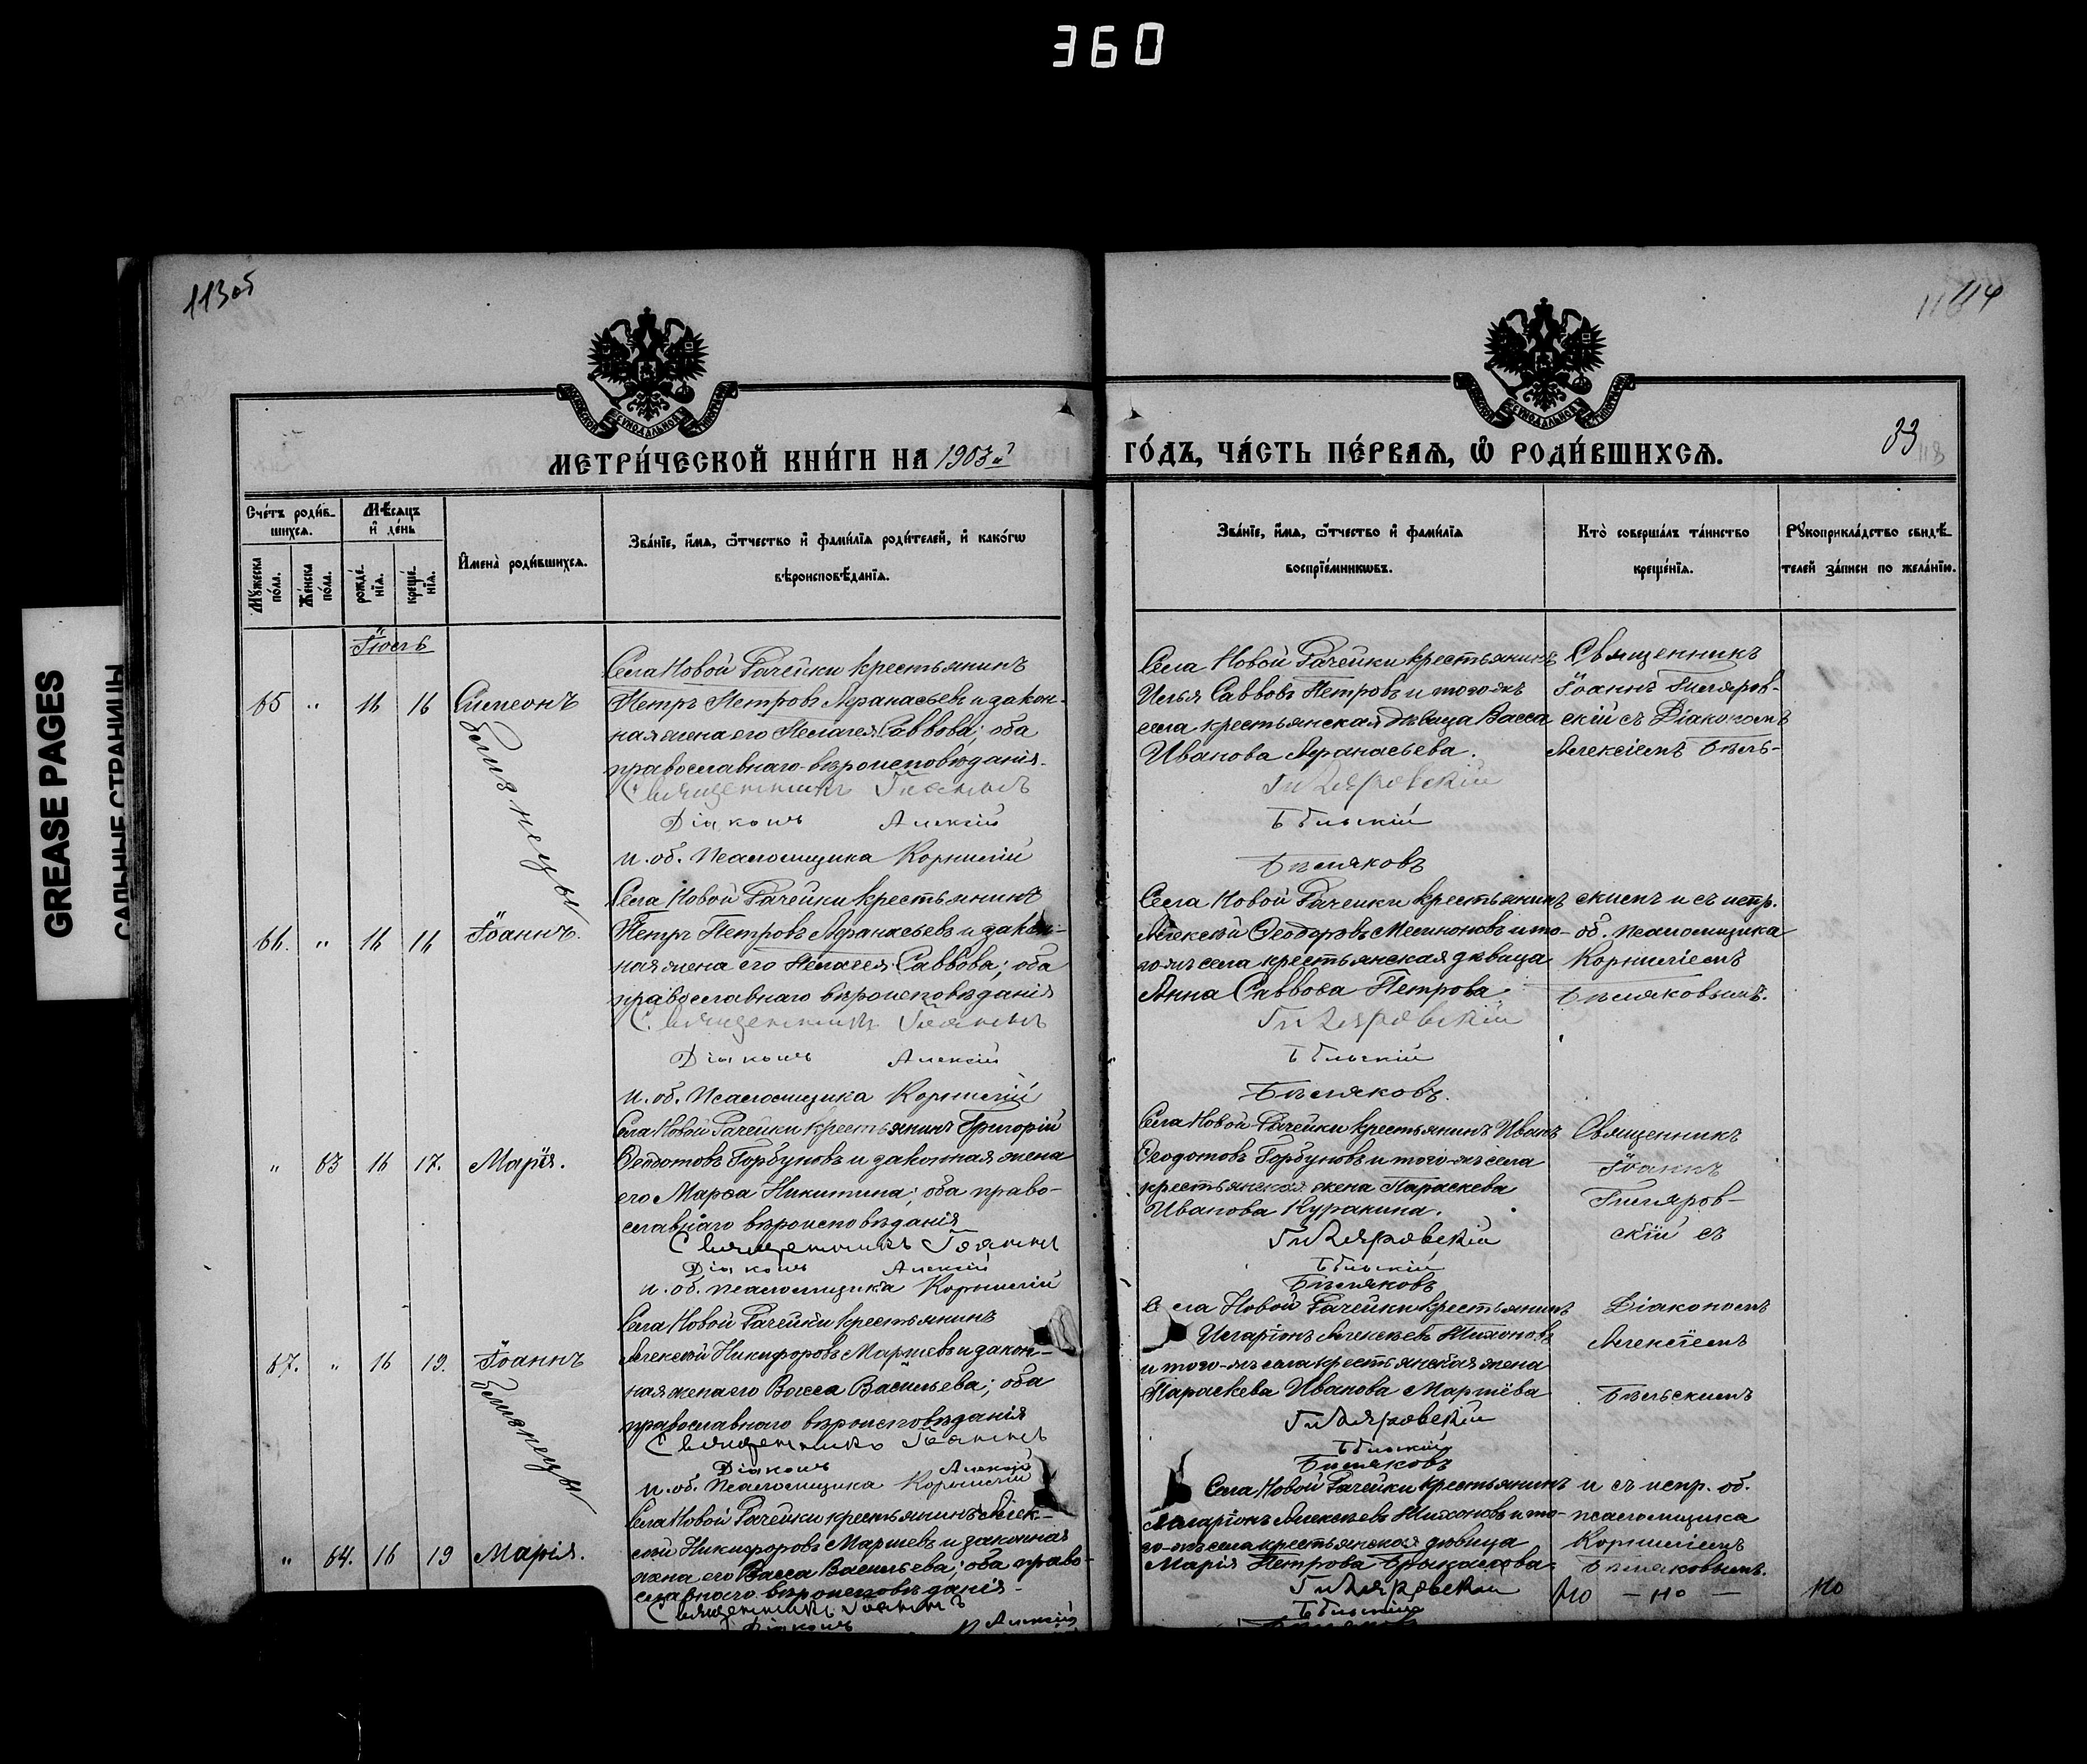 360
113об
114
GREASE PAGES
САЛЬНЫЕ СТРАНИЦЫ
МЕТРИ́ЧЕСКОЙ КНИ́ГИ НА 1903й
ГО́ДЪ, ЧА́СТЬ ПЕ́РВАѦ, Ѡ҆ РОДИ́ВШИХСѦ.
33
Сче́тъ роди́в-
шихсѧ.
Мѣсѧцъ
и҆ де́нь
Мꙋ́жеска
по́ла.
Же́нска
по́ла.
рожде́-
нїѧ.
креще́-
нїѧ.
И҆мена̀ роди́вшихсѧ.
Зва́нїе, и҆́мѧ, ѻ҆́тчество и҆ фами́лїѧ роди́телей, и҆ како́гѡ
вѣроисповѣ́данїѧ.
Зва́нїе, и҆́мѧ, ѻ҆́тчество и҆ фами́лїѧ
воспрїе́мникѡвъ.
Кто̀ соверша́лъ та́инство
креще́нїѧ.
Рꙋкоприкла́дство свидѣ́-
телей за́писи по жела́нїю.
Іюль
65 " 16 16 Симеонъ
Близнецы
Села Новой Рачейки крестьянинъ
Петръ Петровъ Афанасьевъ и закон-
ная жена его Пелагея Саввова; оба
православнаго вѣроисповѣданія.
Священникъ Іоаннъ
Діаконъ Алексій
и. об. псаломщика Корнилій
Села Новой Рачейки крестьянинъ
Илья Саввовъ Петровъ и того-же
села крестьянская дѣвица Васса
Иванова Афанасьева.
Гиляровскій
Бѣльскій
Бѣляковъ
Священникъ
Іоаннъ Гиляров-
скій съ Діакономъ
Алексіемъ Бѣль-
66. " 16 16 Іоаннъ.
Села Новой Рачейки крестьянинъ
Петръ Петровъ Афанасьевъ и закон-
ная жена его Пелагея Саввова; оба
православнаго вѣроисповѣданія
Священникъ Іоаннъ
Діаконъ Алексій
и. об. псаломщика Корнилій
Села Новой Рачейки крестьянинъ
Алексѣй Ѳеодоровъ и то-
го-же села крестьянская дѣвица
Анна Саввова Петрова.
Гиляровскій
Бѣльскій
Бѣляковъ.
скимъ и съ испр.
об. псаломщика
Корниліемъ
Бѣляковымъ.
" 63 16 17. Марія.
Села Новой Рачейки крестьянинъ Григорій
Ѳеодотовъ Горбуновъ и законная жена
его Марѳа Никитина; оба право-
славнаго вѣроисповѣданія
Священникъ Іоаннъ
Діаконъ Алексій
и. об. псаломщика Корнилій
Села Новой Рачейки крестьянинъ Иванъ
Ѳеодотовъ Горбуновъ и того-же села
крестьянская жена Параскева
Иванова Куракина.
Гиляровскій
Бѣльскій
Бѣляковъ
Священникъ
Іоаннъ
Гиляров-
скій съ
67. " 16 19. Іоаннъ
Близнецы
Села Новой Рачейки крестьянинъ
Алексѣй Никифоровъ Мартевъ и закон-
ная жена его Васса Васильева; оба
православнаго вѣроисповѣданія
Священникъ Іоаннъ
Діаконъ Алексій
и. об. псаломщика Корнилій
Села Новой Рачейки крестьянинъ
Иларіонъ Алексѣевъ Тихоновъ
и того-же села крестьянская жена
Параскева Иванова
Гиляровскій
Бѣльскій
Бѣляковъ
Діакономъ
Алексіемъ
Бѣльскимъ
" 64. 16 19 Марія.
Села Новой Рачейки крестьянинъ Алек-
сѣй Никифоровъ Мартевъ и законная
жена его Васса Васильева; оба право-
славнаго вѣроисповѣданія.
Священникъ Іоаннъ
Діаконъ Алексій
Села Новой Рачейки крестьянинъ
Иларіонъ Алексѣевъ Тихоновъ и то-
го-же села крестьянская дѣвица
Марія Петрова
Гиляровскій
Бѣльскій
и съ испр. об.
псаломщика
Корниліемъ
Бѣляковымъ.